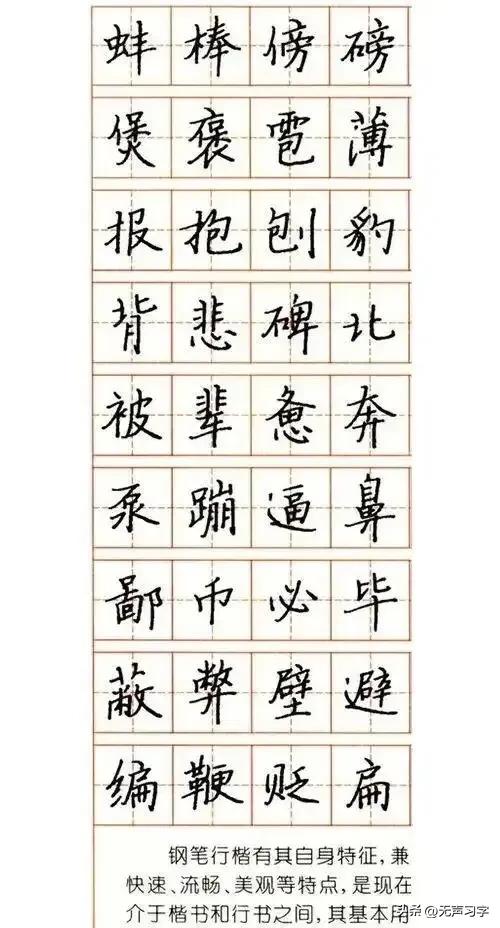 蚌棒傍磅
煲褒雹薄
报抱刨豹
背悲碑北
被辈惫奔
泵蹦逼鼻
鄙币必毕
蔽弊壁避
编鞭贬扁
钢笔行楷有其自身特征，兼
快速、流畅、美观等特点，是现在
介于楷书和行书之间，其基本用
头条@无声习字